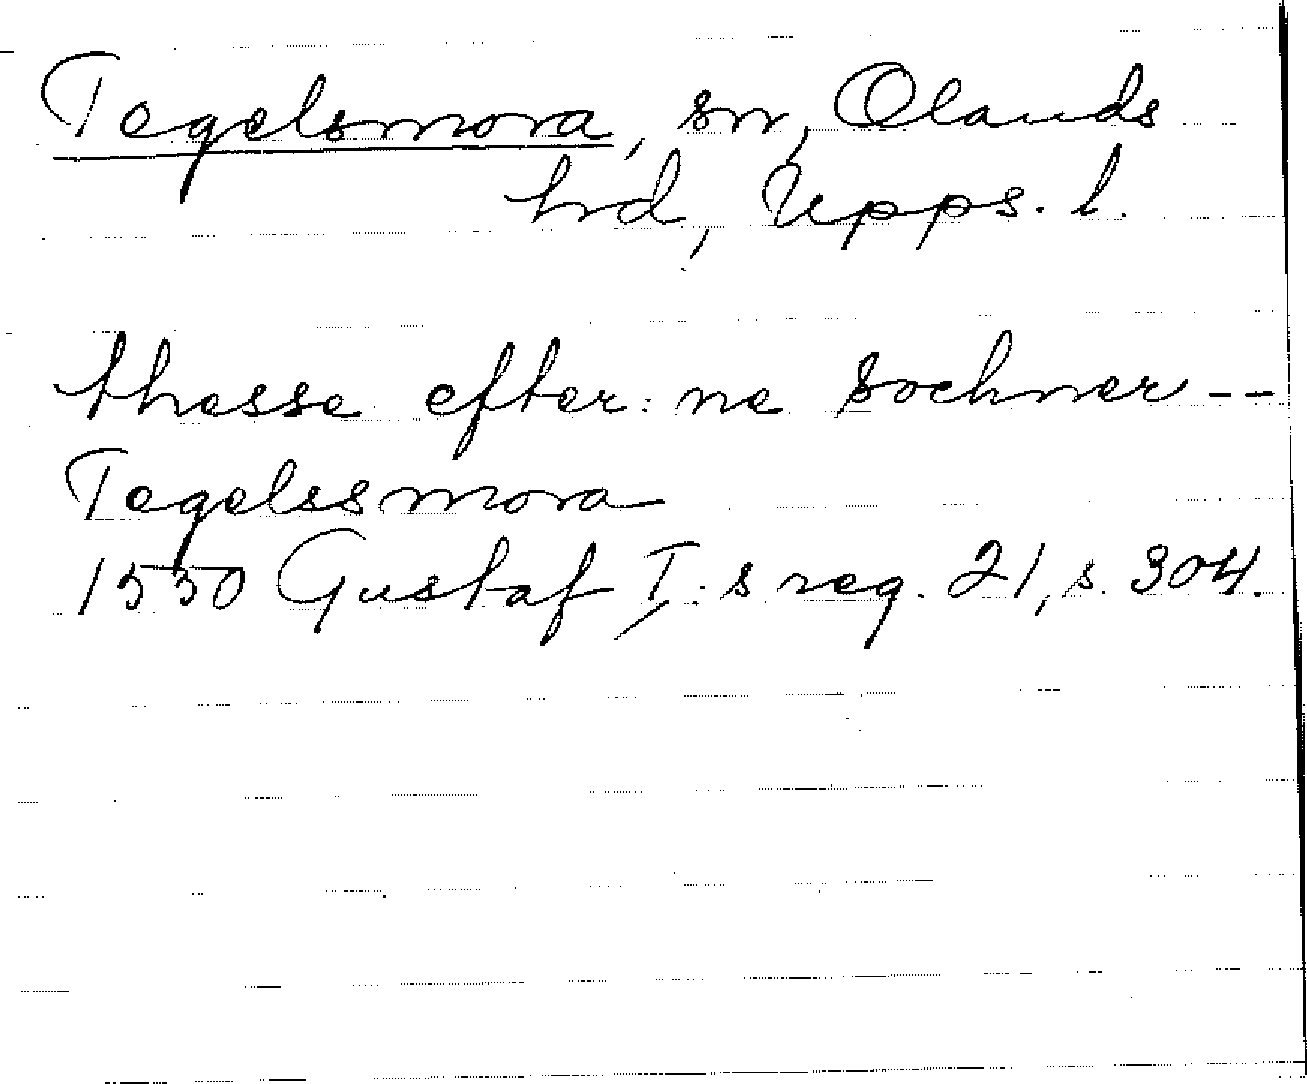 Tegelsmora, sn, Olands
hrd, Upps. l.
thesse efter: ne sochner --
Tegelssmora
1550 Gustaf I:s reg. 21, s. 304.